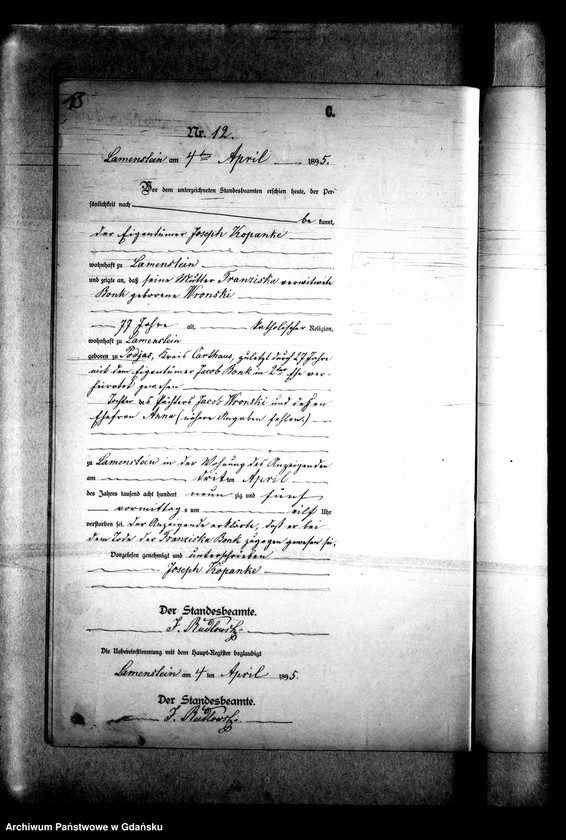 13
C.
Nr. 12.
Lamenstein am 4ten April 1895.
Vor dem unterzeichneten Standesbeamten erschien heute, der Per-
sönlichkeit nach
be kannt,
der Eigentümer Joseph Kopanke
wohnhaft zu Lamenstein
und zeigte an, daß seine Mutter Franziska verwitwete
Bonk geborene Wronski
77 Jahre alt, katholischer Religion,
wohnhaft zu Lamenstein
geboren zu Podjas, Kreis Carthaus, zuletzt durch 27 Jahre
mit dem Eigentümer Jacob Bonk in 2ter Ehe ver-
heiratet gewesen
Tochter des Pächters Jacob Wronski und dessen
Ehefrau Anna (nähere Angaben fehlen.)
zu Lamenstein in der Wohnung des Anzeigenden
am dritten April
des Jahres tausend acht hundert neun zig und fünf
vormittags um eilf Uhr
verstorben sei. Der Anzeigende erklärte, daß er bei
dem Tode der Franziska Bonk zugegen gewesen sei.
Vorgelesen, genehmigt und unterschrieben
Joseph Kopanke
Der Standesbeamte.
Die Uebereinstimmung mit dem Haupt-Register beglaubigt
Lamenstein am 4 ten April 1895.
Der Standesbeamte.
Archiwum Państwowe w Gdańsku